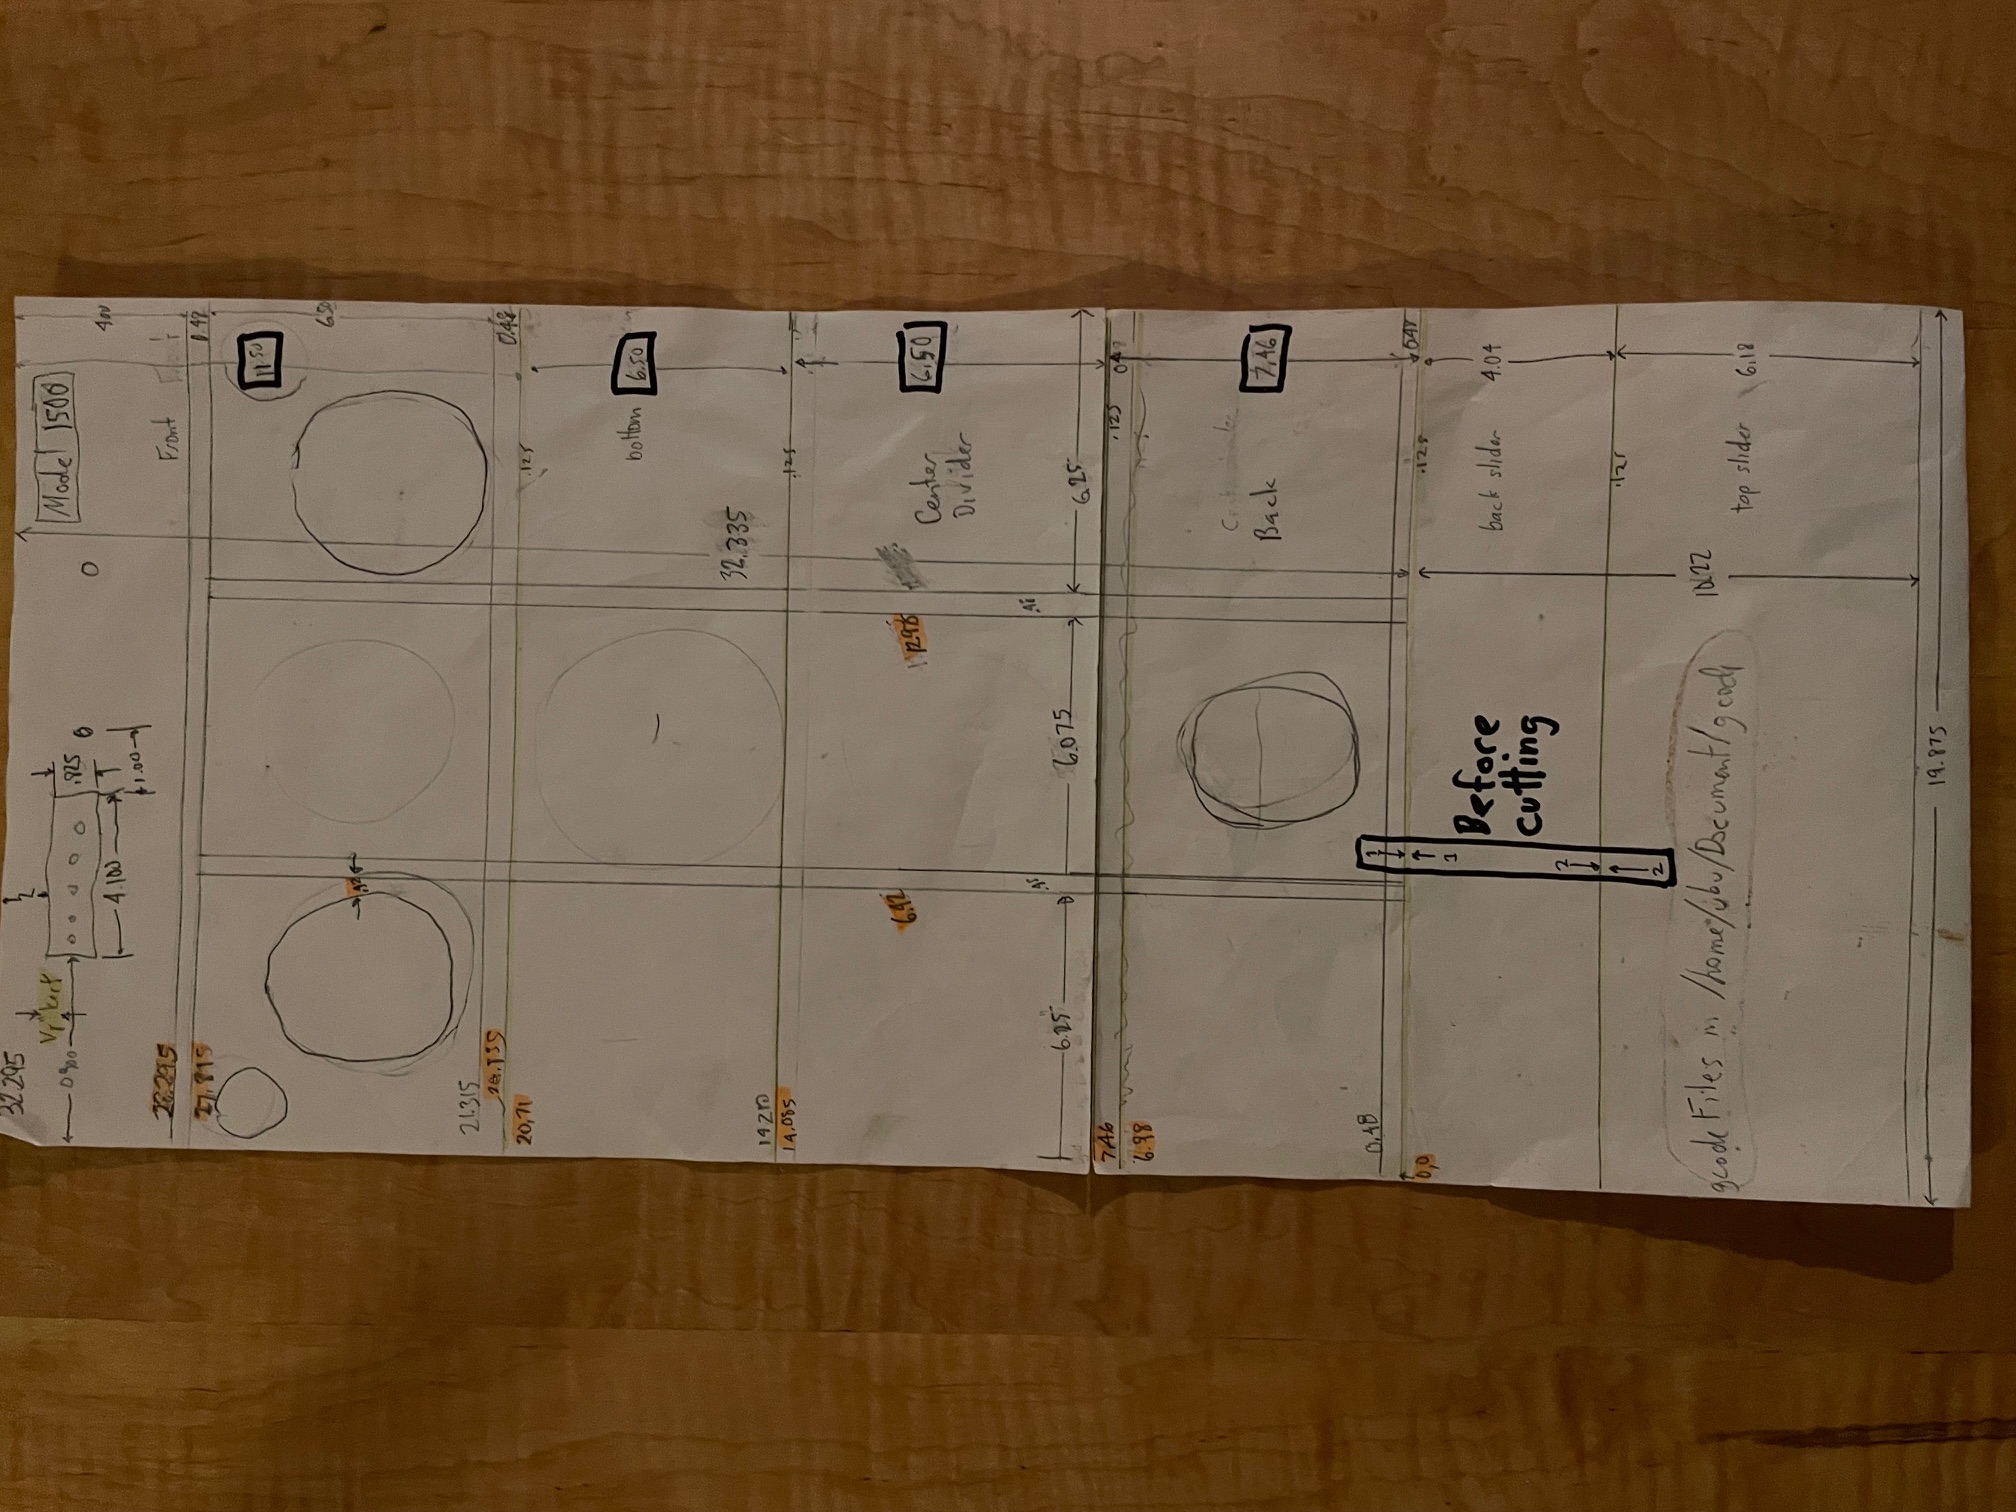 32.295
1/2
Model 1500
0.900
.825
4.100
1.00
400
28.295
Front
0.48
27.815
11.50
6.50
.42
21.315
0.48
20,71
.125
bottom
6.50
32.335
14.210
14.085
.125
6.42
12.98
Center
Divider
6.50
.48
.48
6.25
6.075
6.25
7.46
.125
6.98
Back
7.46
0.48
0,0
.125
0.48
1
1
Before
cutting
back slider
4.04
2
.125
2
gcode Files in /home/ubu/Document/gcode
10.22
top slider
6.18
19.875